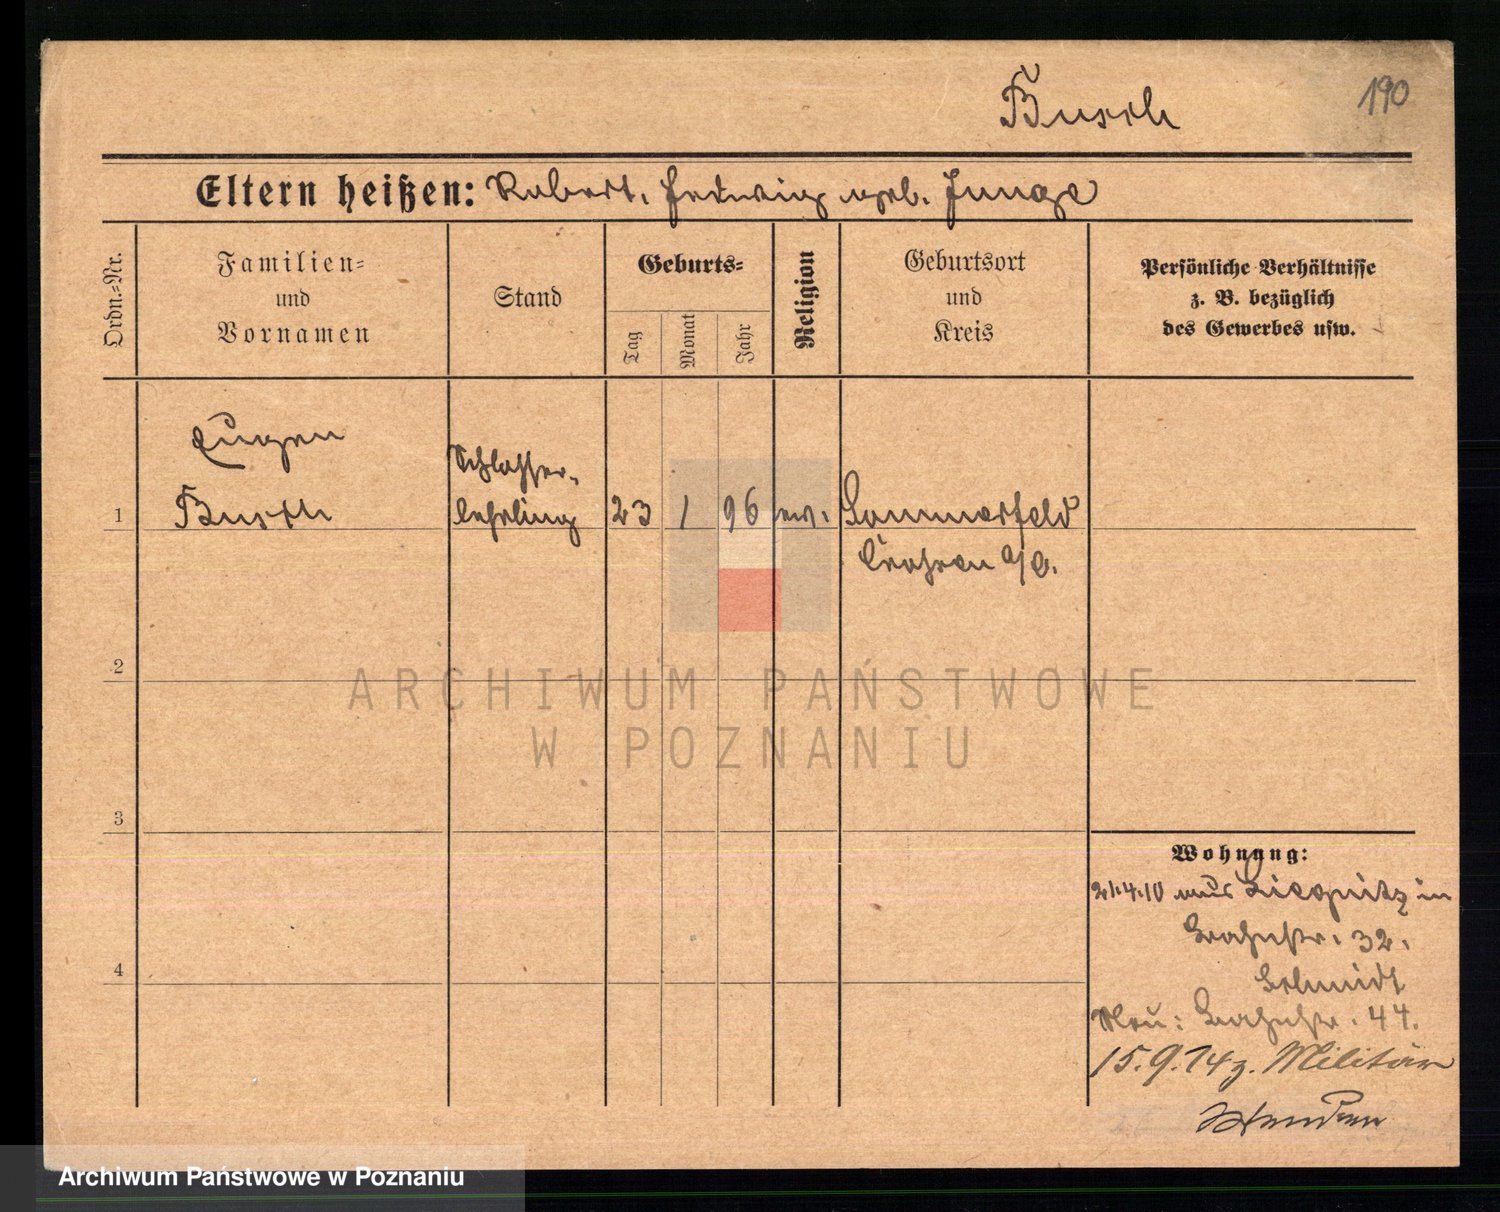 Busch
190
Eltern heißen: Robert, Hedwig geb. Junge
Ordn.=Nr.
Familien=
und
Vornamen
Stand
Geburts=
Tag
Monat
Jahr
Religion
Geburtsort
und
Kreis
Persönliche Verhältnisse
z. B. bezüglich
des Gewerbes usw.
Eugen
Busch
Schlosser-
lehrling
1
23
1
96
ev.
Sommerfeld
Crossen a/O.
2
3
4
Wohnung:
21.4.10 aus Liegnitz in
Bahnstr. 32.
Schmidt
Neu: Bahnstr. 44.
15.9.14 z. Militär
ARCHIWUM PAŃSTWOWE
W POZNANIU
Archiwum Państwowe w Poznaniu